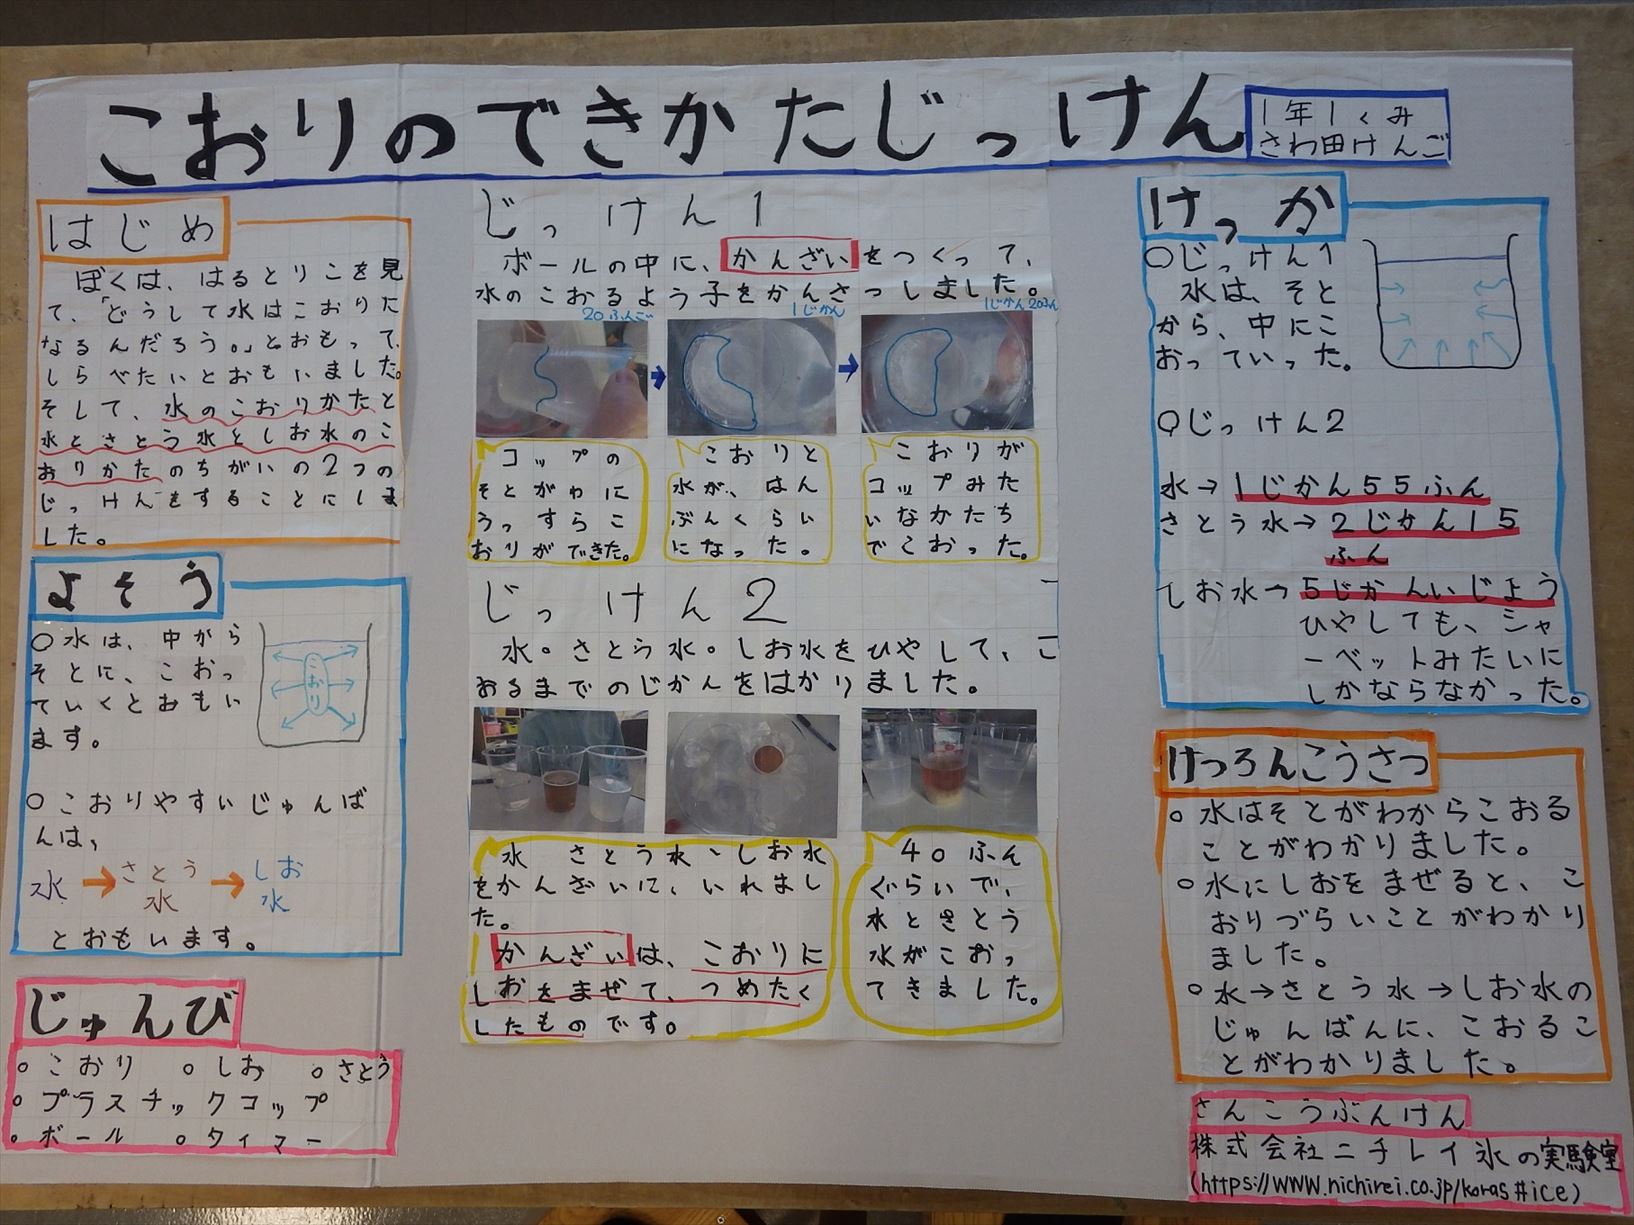 こおりのできかたじっけん
1年1くみ
さわ田けんご
はじめ
ぼくは、はるとりこを見
て、「どうして水はこおりた
なるんだろう。」とおもって、
しらべたいとおもいました。
そして、水のこおりかたと
水とさとう水としお水のこ
おりかたのちがいの2つの
じっけんをすることにしま
した。
よそう
○水は、中から
そとに、こおっ
ていくとおもい
ます。
こおり
○こおりやすいじゅんば
んは、
水→さとう水→しお水
とおもいます。
じゅんび
○こおり ○しお ○さとう
○プラスチックコップ
○ボール ○タイマー
じっけん1
ボールの中に、かんざいをつくって、
水のこおるよう子をかんさつしました。
20ふんご
1じかん
1じかん20ふん
コップの
そとがわに
うっすらこ
おりができた。
こおりと
水が、はん
ぶんくらい
になった。
こおりが
コップみた
いなかたち
でこおった。
じっけん2
水・さとう水・しお水をひやして、こ
おるまでのじかんをはかりました。
水 さとう水、しお水
をかんざいに、いれまし
た。
かんざいは、こおりに
しおをまぜて、つめたく
したものです。
40ふん
ぐらいで、
水とさとう
水がこおっ
てきました。
けっか
○じっけん1
水は、そと
から、中にこ
おっていった。
○じっけん2
水→1じかん55ふん
さとう水→2じかん15
ふん
しお水→5じかんいじょう
ひやしても、シャ
ーベットみたいに
しかならなかった。
けつろんこうさつ
○水はそとがわからこおる
ことがわかりました。
○水にしおをまぜると、こ
おりづらいことがわかり
ました。
○水→さとう水→しお水の
じゅんばんに、こおるこ
とがわかりました。
さんこうぶんけん
株式会社ニチレイ氷の実験室
(https://www.nichirei.co.jp/koras#ice)